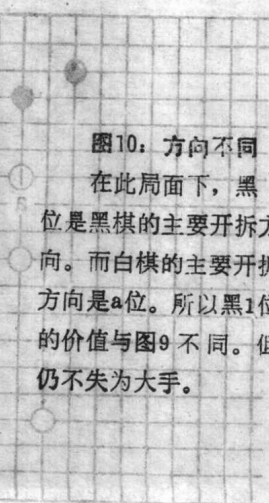 图10：方向不同
在此局面下，黑
位是黑棋的主要开拆方
向。而白棋的主要开拆
方向是a位。所以黑1位
的价值与图9不同。但
仍不失为大手。